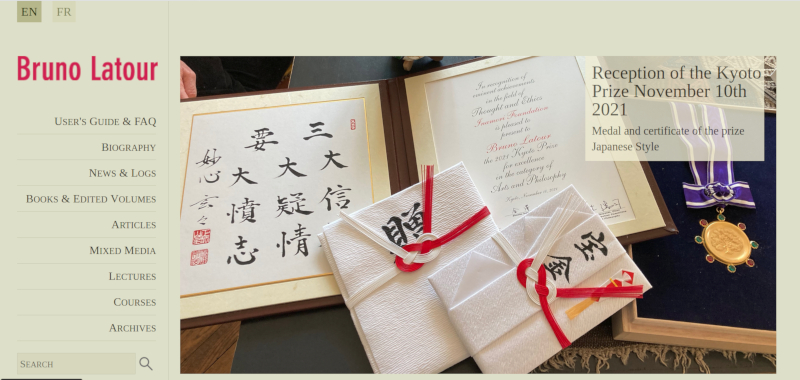 EN FR
Bruno Latour
User's Guide & FAQ
Biography
News & Logs
Books & Edited Volumes
Articles
Mixed Media
Lectures
Courses
Archives
Search
Reception of the Kyoto
Prize November 10th
2021
Medal and certificate of the prize
Japanese Style
三大信
要大疑情
大憤志
妙心
In recognition of
eminent achievements
in the field of
Thought and Ethics
Inamori Foundation
is pleased to
present to
Bruno Latour
the 2021 Kyoto Prize
for excellence
in the category of
Arts and Philosophy
贈
金